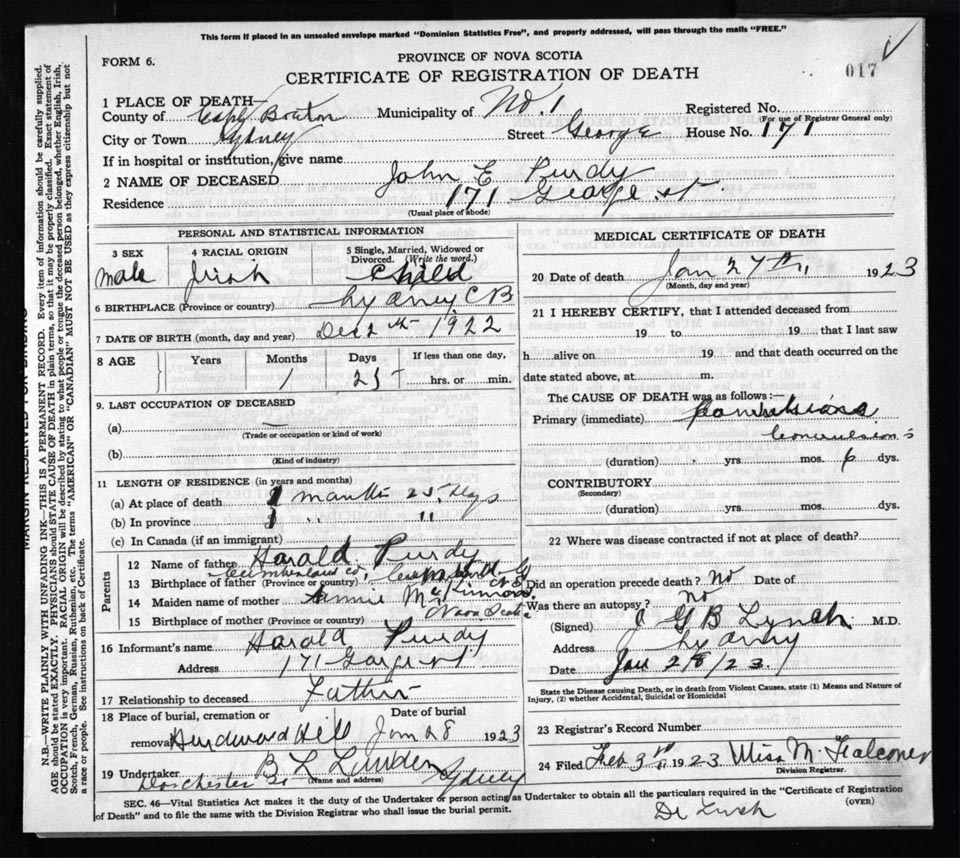 This form if placed in an unsealed envelope marked "Dominion Statistics Free", and properly addressed, will pass through the mails "FREE."
FORM 6.
PROVINCE OF NOVA SCOTIA
CERTIFICATE OF REGISTRATION OF DEATH
017
1 PLACE OF DEATH—
County of Cape Breton Municipality of No. 1 Registered No.
(For use of Registrar General only)
City or Town Sydney Street George House No. 171
If in hospital or institution, give name
2 NAME OF DECEASED John E Purdy
Residence 171 George St
(Usual place of abode)
PERSONAL AND STATISTICAL INFORMATION
3 SEX 4 RACIAL ORIGIN 5 Single, Married, Widowed or Divorced. (Write the word.)
Male Irish Child
6 BIRTHPLACE (Province or country) Sydney C B
7 DATE OF BIRTH (month, day and year) Dec 2th 1922
8 AGE Years Months Days If less than one day,
1 25 hrs. or min.
9. LAST OCCUPATION OF DECEASED
(a) —
(Trade or occupation or kind of work)
(b)
(Kind of industry)
11 LENGTH OF RESIDENCE (in years and months)
(a) At place of death 1 month 25 days
(b) In province 1 " "
(c) In Canada (if an immigrant)
Parents
12 Name of father Harald Purdy
13 Birthplace of father (Province or country) Cumberland Co,
14 Maiden name of mother Annie McKinnon
15 Birthplace of mother (Province or country) Nova Scotia
16 Informant's name Harald Purdy
Address 171 George St.
17 Relationship to deceased Father
18 Place of burial, cremation or removal Hardwood Hill Date of burial Jan 28 1923
19 Undertaker B L Linden
(Name and address)
Dorchester Sydney
MEDICAL CERTIFICATE OF DEATH
20 Date of death Jan 27th 1923
(Month, day and year)
21 I HEREBY CERTIFY, that I attended deceased from
19 to 19 that I last saw
h alive on 19 and that death occurred on the
date stated above, at m.
The CAUSE OF DEATH was as follows:—
Primary (immediate)
Convulsions
(duration) yrs mos. 6 dys.
CONTRIBUTORY
(Secondary)
(duration) yrs. mos. dys.
22 Where was disease contracted if not at place of death?
Did an operation precede death? No Date of
Was there an autopsy? No
(Signed) J G B Lynch M.D.
Address Sydney
Date Jan 28/23
State the Disease causing Death, or in death from Violent Causes, state (1) Means and Nature of
Injury, (2) whether Accidental, Suicidal or Homicidal
23 Registrar's Record Number
24 Filed Feb 3rd 1923 Miss M. Falconer
Division Registrar.
SEC. 46—Vital Statistics Act makes it the duty of the Undertaker or person acting as Undertaker to obtain all the particulars required in the "Certificate of Registration
of Death" and to file the same with the Division Registrar who shall issue the burial permit.
(OVER)
Dr Lynch
MARGIN RESERVED FOR BINDING
N.B.—WRITE PLAINLY WITH UNFADING INK—THIS IS A PERMANENT RECORD. Every item of information should be carefully supplied.
AGE should be stated EXACTLY. PHYSICIANS should STATE CAUSE OF DEATH in plain terms, so that it may be properly classified. Exact statement of
OCCUPATION is very important. RACIAL ORIGIN will be described by stating to what people or tongue the deceased person belonged, whether English, Irish,
Scotch, French, German, Russian, Ruthenian, etc. The terms "AMERICAN" OR "CANADIAN" MUST NOT BE USED as they express citizenship but not
a race or people. See instructions on back of Certificate.